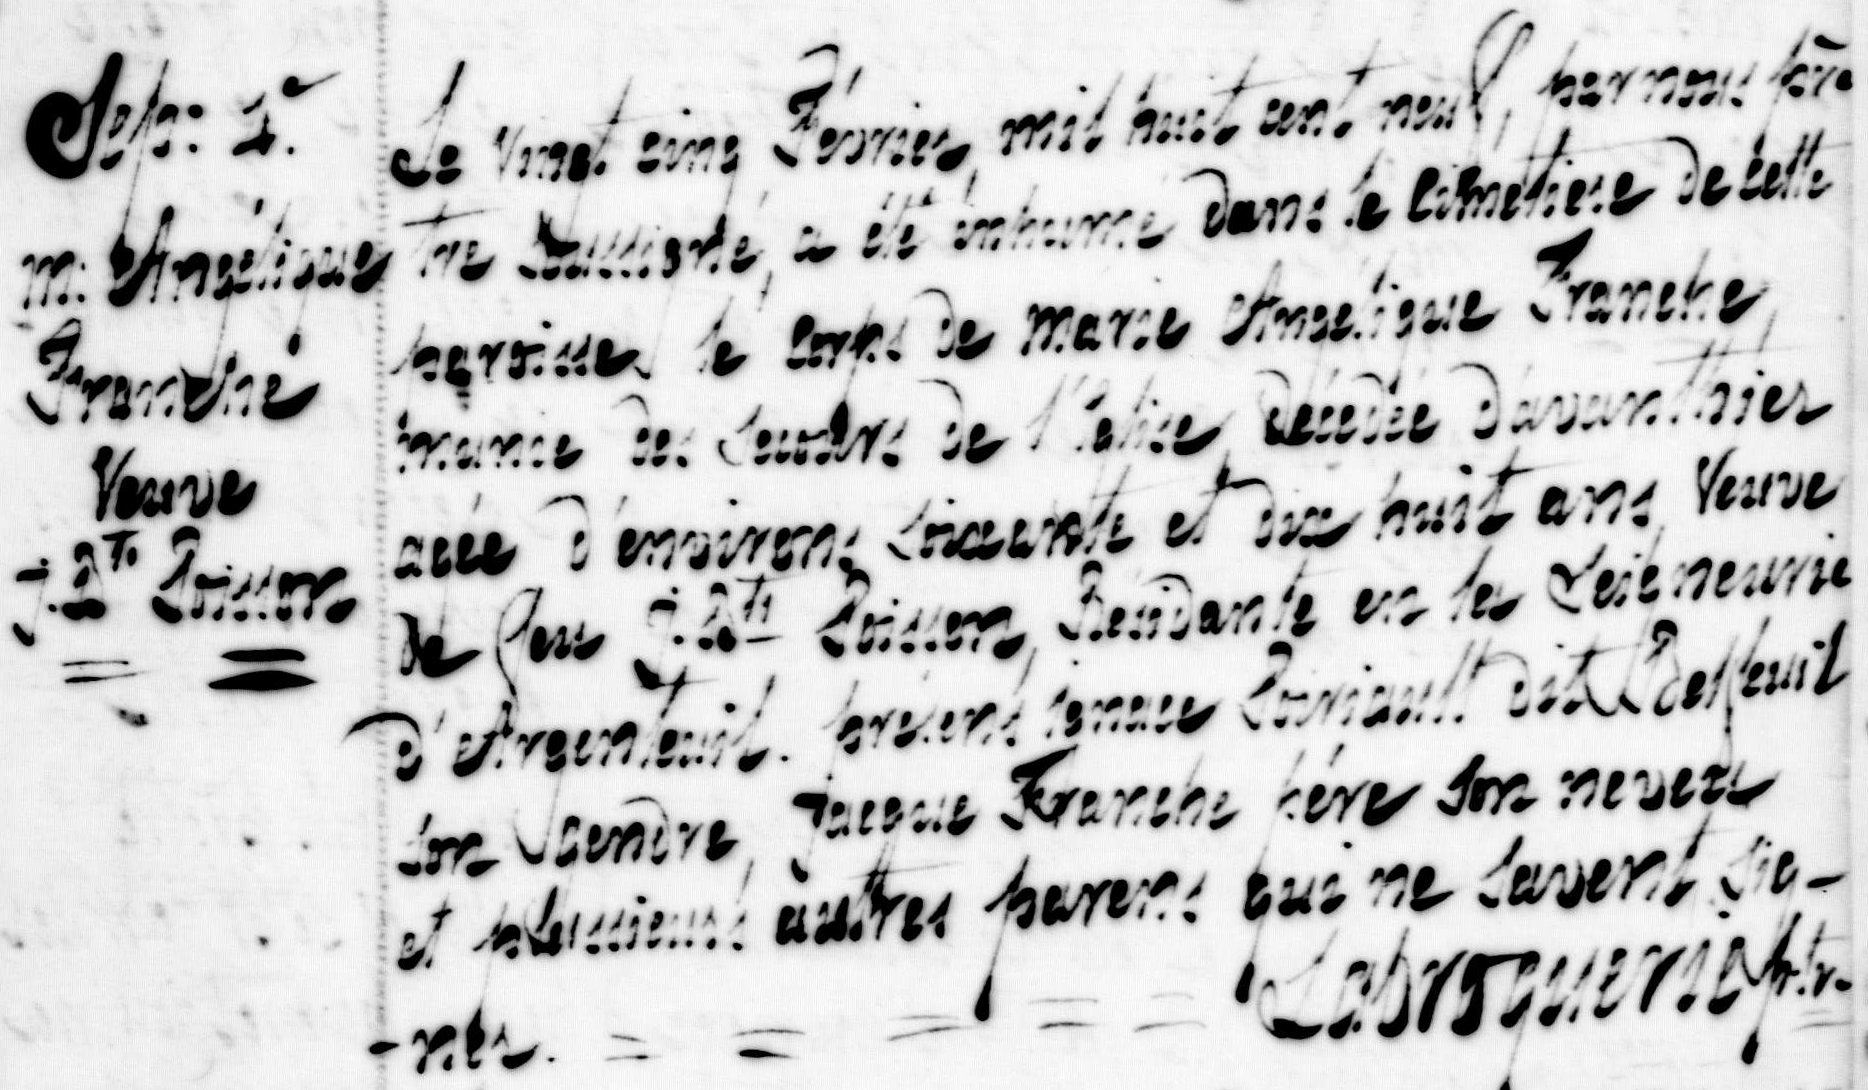 Sep: 4e
m: Angélique
Franche
Veuve
J. Bte Poisson
Le vingt cinq Février, mil huit cent neuf, par nous prê
tre soussigné, a été inhumé dans le cimetiere de cette
paroisse le corps de marie Angélique Franche,
munie des secours de l'Eglise, décédée d'avanthier
agée d'environs soixante et dix huit ans, Veuve
de feu J. Bte Poisson, Résidante en la Seigneurie
d'Argenteuil. présens ignace Poiriault dit Bellfeuil
son gendre, Jacque Franche père son neveu
et plussieurs autres parens qui ne savent sig-
-ner. Labroquerie ptr.